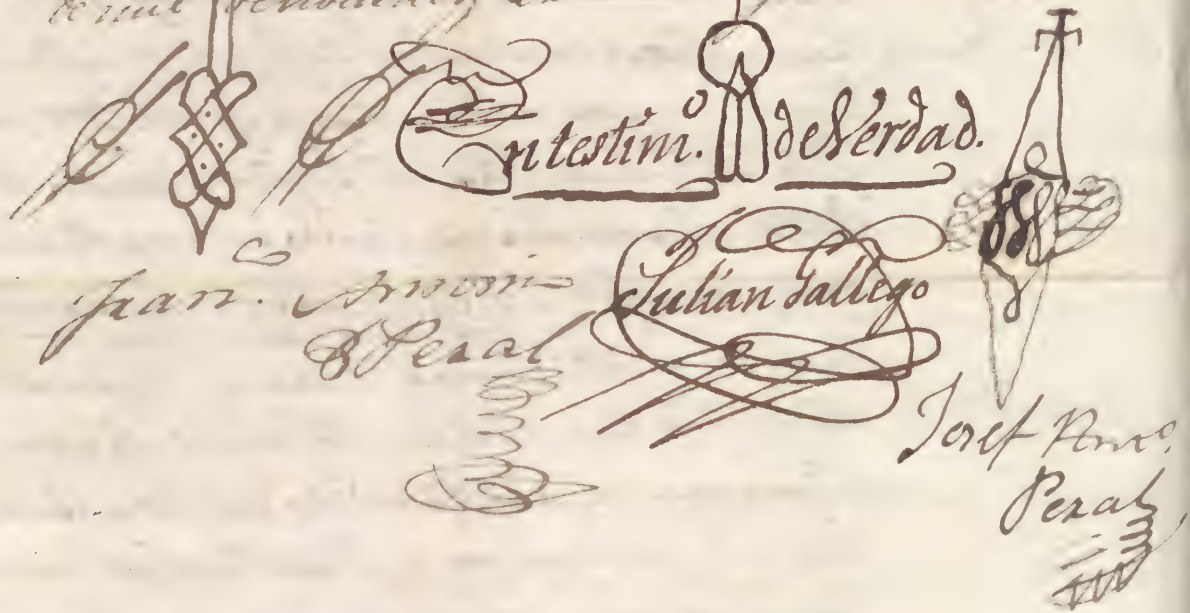 de mil
En testim.º de Verdad.
Juan. Antoni
Peral
Julian Gallego
Josef Antº.
Peral